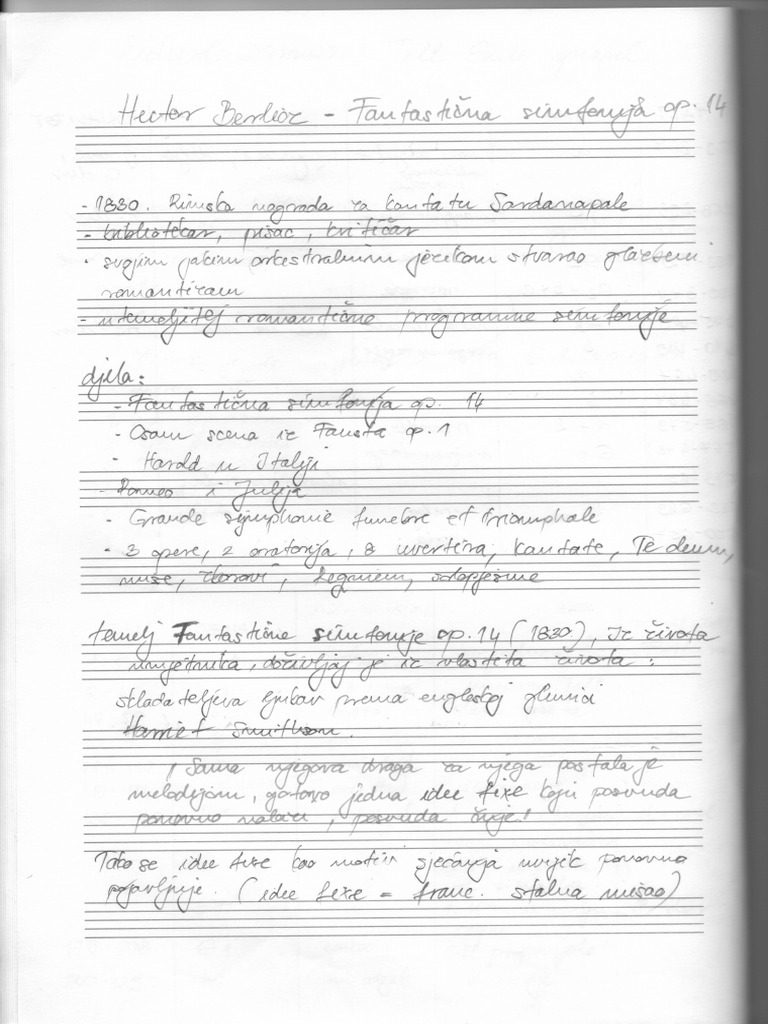 Hector Berlioz - Fantastična simfonija op. 14
- 1830. Rimska nagrada za kantatu Sardanapale
- bibliotekar, pisac, kritičar
- svojim jakim orkestralnim jezikom stvarao glazbeni
romantizam
- utemeljitelj romantične programne simfonije
djela:
- Fantastična simfonija op. 14
- Osam scena iz Fausta op. 1
- Harold u Italiji
- Romeo i Julija
- Grande symphonie funebre et triomphale
- 3 opere, 2 oratorija, 8 uvertira, kantate, Te deum,
mise, zborovi, Requiem, solopjesme
temelj Fantastične simfonije op. 14 (1830), Iz života
umjetnika, doživljaj je iz vlastita života:
skladateljeva ljubav prema engleskoj glumici
Harriet Smithson.
"Sama njegova draga za njega postala je
melodijom, gotovo jedna idee fixe koju posvuda
ponovno nalazi, posvuda čuje!"
Tako se idee fixe kao motiv sjećanja uvijek ponovno
pojavljuje. (idee fixe = franc. stalna misao)